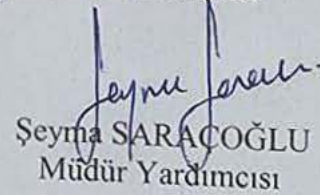 Şeyma SARAÇOĞLU
Müdür Yardımcısı